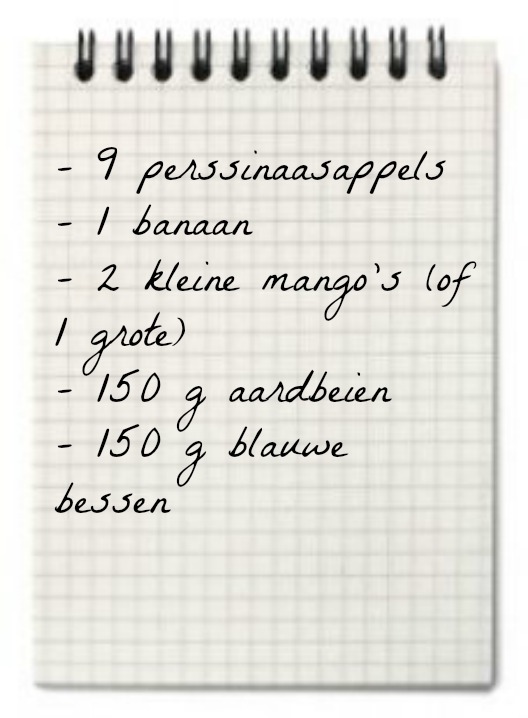 - 9 perssinaasappels
- 1 banaan
- 2 kleine mango's (of
1 grote)
- 150 g aardbeien
- 150 g blauwe
bessen